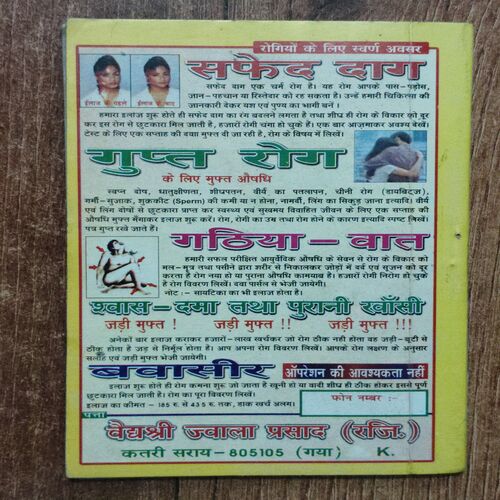 रोगियों के लिए स्वर्ण अवसर
सफेद दाग
इलाज के पहले
इलाज के बाद
सफेद दाग एक चर्म रोग है। यह रोग आपके पास-पड़ोस,
जान-पहचान या रिस्तेदार को रह सकता है। उन्हें हमारी चिकित्सा की
जानकारी देकर यश एवं पुण्य का भागी बनें।
हमारा इलाज शुरू होते ही सफेद दाग का रंग बदलने लगता है तथा शीघ्र ही रोग के विकार को दूर
कर इस रोग से छुटकारा मिल जाता है, हजारों रोगी चंगा हो चुके हैं। एक बार आजमाकर अवश्य देखें।
टेस्ट के लिए एक सप्ताह की दवा मुफ्त दी जा रही है, रोग के विषय में लिखें।
गुप्त रोग
के लिए मुफ्त औषधि
स्वप्न दोष, धातुक्षीणता, शीघ्रपतन, वीर्य का पतलापन, चीनी रोग (डायबिट्ज),
गर्मी-सुजाक, शुक्रकीट (Sperm) की कमी या न होना, नामर्दी, लिंग का सिकुड़ जाना इत्यादि। वीर्य
एवं लिंग दोषों से छुटकारा प्राप्त कर स्वस्थ्य एवं सुखमय विवाहित जीवन के लिए एक सप्ताह की
औषधि मुफ्त मँगाकर इलाज शुरू करें। रोग, रोगी का उम्र तथा रोग होने के कारण इत्यादि स्पष्ट लिखें।
पत्र गुप्त रखे जाते हैं।
गठिया – वात
हमारी सफल परीक्षित आयुर्वेदिक औषधि के सेवन से रोग के विकार को
मल-मूत्र तथा पसीने द्वारा शरीर से निकालकर जोड़ों में दर्द एवं सूजन को दूर
करता है रोग नया हो या पुराना औषधि कामयाब है। हजारों रोगी निरोग हो चुके
हैं। रोग का विवरण लिखें। दवा पार्सल से भेजी जायेगी।
नोट - नामावटिका का भी इलाज होता है।
श्वास – दमा तथा पुरानी खाँसी
जड़ी मुफ्त ! जड़ी मुफ्त !! जड़ी मुफ्त !!!
अनेकों बार इलाज कराकर हजारों-लाख खर्चकर जो रोग ठीक नहीं होता वह जड़ी-बूटी से
ठीक होता है जड़ से निर्मूल होता है। आप अपना रोग विवरण लिखें। आपके रोग लक्षण के अनुसार
सलाह एवं जड़ी मुफ्त भेजी जायेगी।
बवासीर
ऑपरेशन की आवश्यकता नहीं
इलाज शुरू होते ही रोग कमना शुरू हो जाता है खूनी हो या वादी शीघ्र ही ठीक होकर इससे पूर्ण
छुटकारा मिल जाती है। रोग का पूरा विवरण लिखें।
इलाज का कीमत - 185 रु. से 435 रु. तक, डाक खर्च अलग।
फोन नम्बर :-
पत्ता
वैद्यश्री ज्वाला प्रसाद (रजि.)
कतरी सराय-805105 (गया) K.